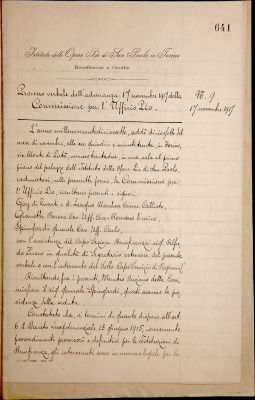 641
Istituto delle Opere Pie di San Paolo in Torino
Beneficenza e Credito
Processo verbale dell'adunanza 17 novembre 1917 della
Commissione per l'Ufficio Pio.
N. 9
17 novembre 1917
L'anno millenovecentodiciasette, addì diciasette del
mese di novembre, alle ore quindici e minuti trenta, in Torino,
via Monte di Pietà, numero trentadue, in una sala al primo
piano del palazzo dell'Istituto delle Opere Pie di San Paolo,
radunatasi, nelle prescritte forme, la Commissione per
l'Ufficio Pio, risultano presenti i signori:
Gay di Quarti e di Lesegno Marchese Comm. Callisto,
Gianotti Barone Cav. Uff. Avv. Romano Enrico,
Spingardi generale Cav. Uff. Carlo,
con l'assistenza del Capo Sezione Beneficenza sig. Alfre
do in qualità di Segretario estensore del presente
verbale e con l'intervento del Sotto Capo Servizio di
Risultando fra i presenti Membro Anziano della Com
missione il sig. generale Spingardi, questi assume la pre
sidenza della seduta.
Constatato che, a termini di quanto dispone all'art.
6 il decreto luogotenenziale 13 giugno 1915, concernente
provvedimenti provvisori e definitivi per le Istituzioni di
Beneficenza, gli intervenuti sono in numero legale per la